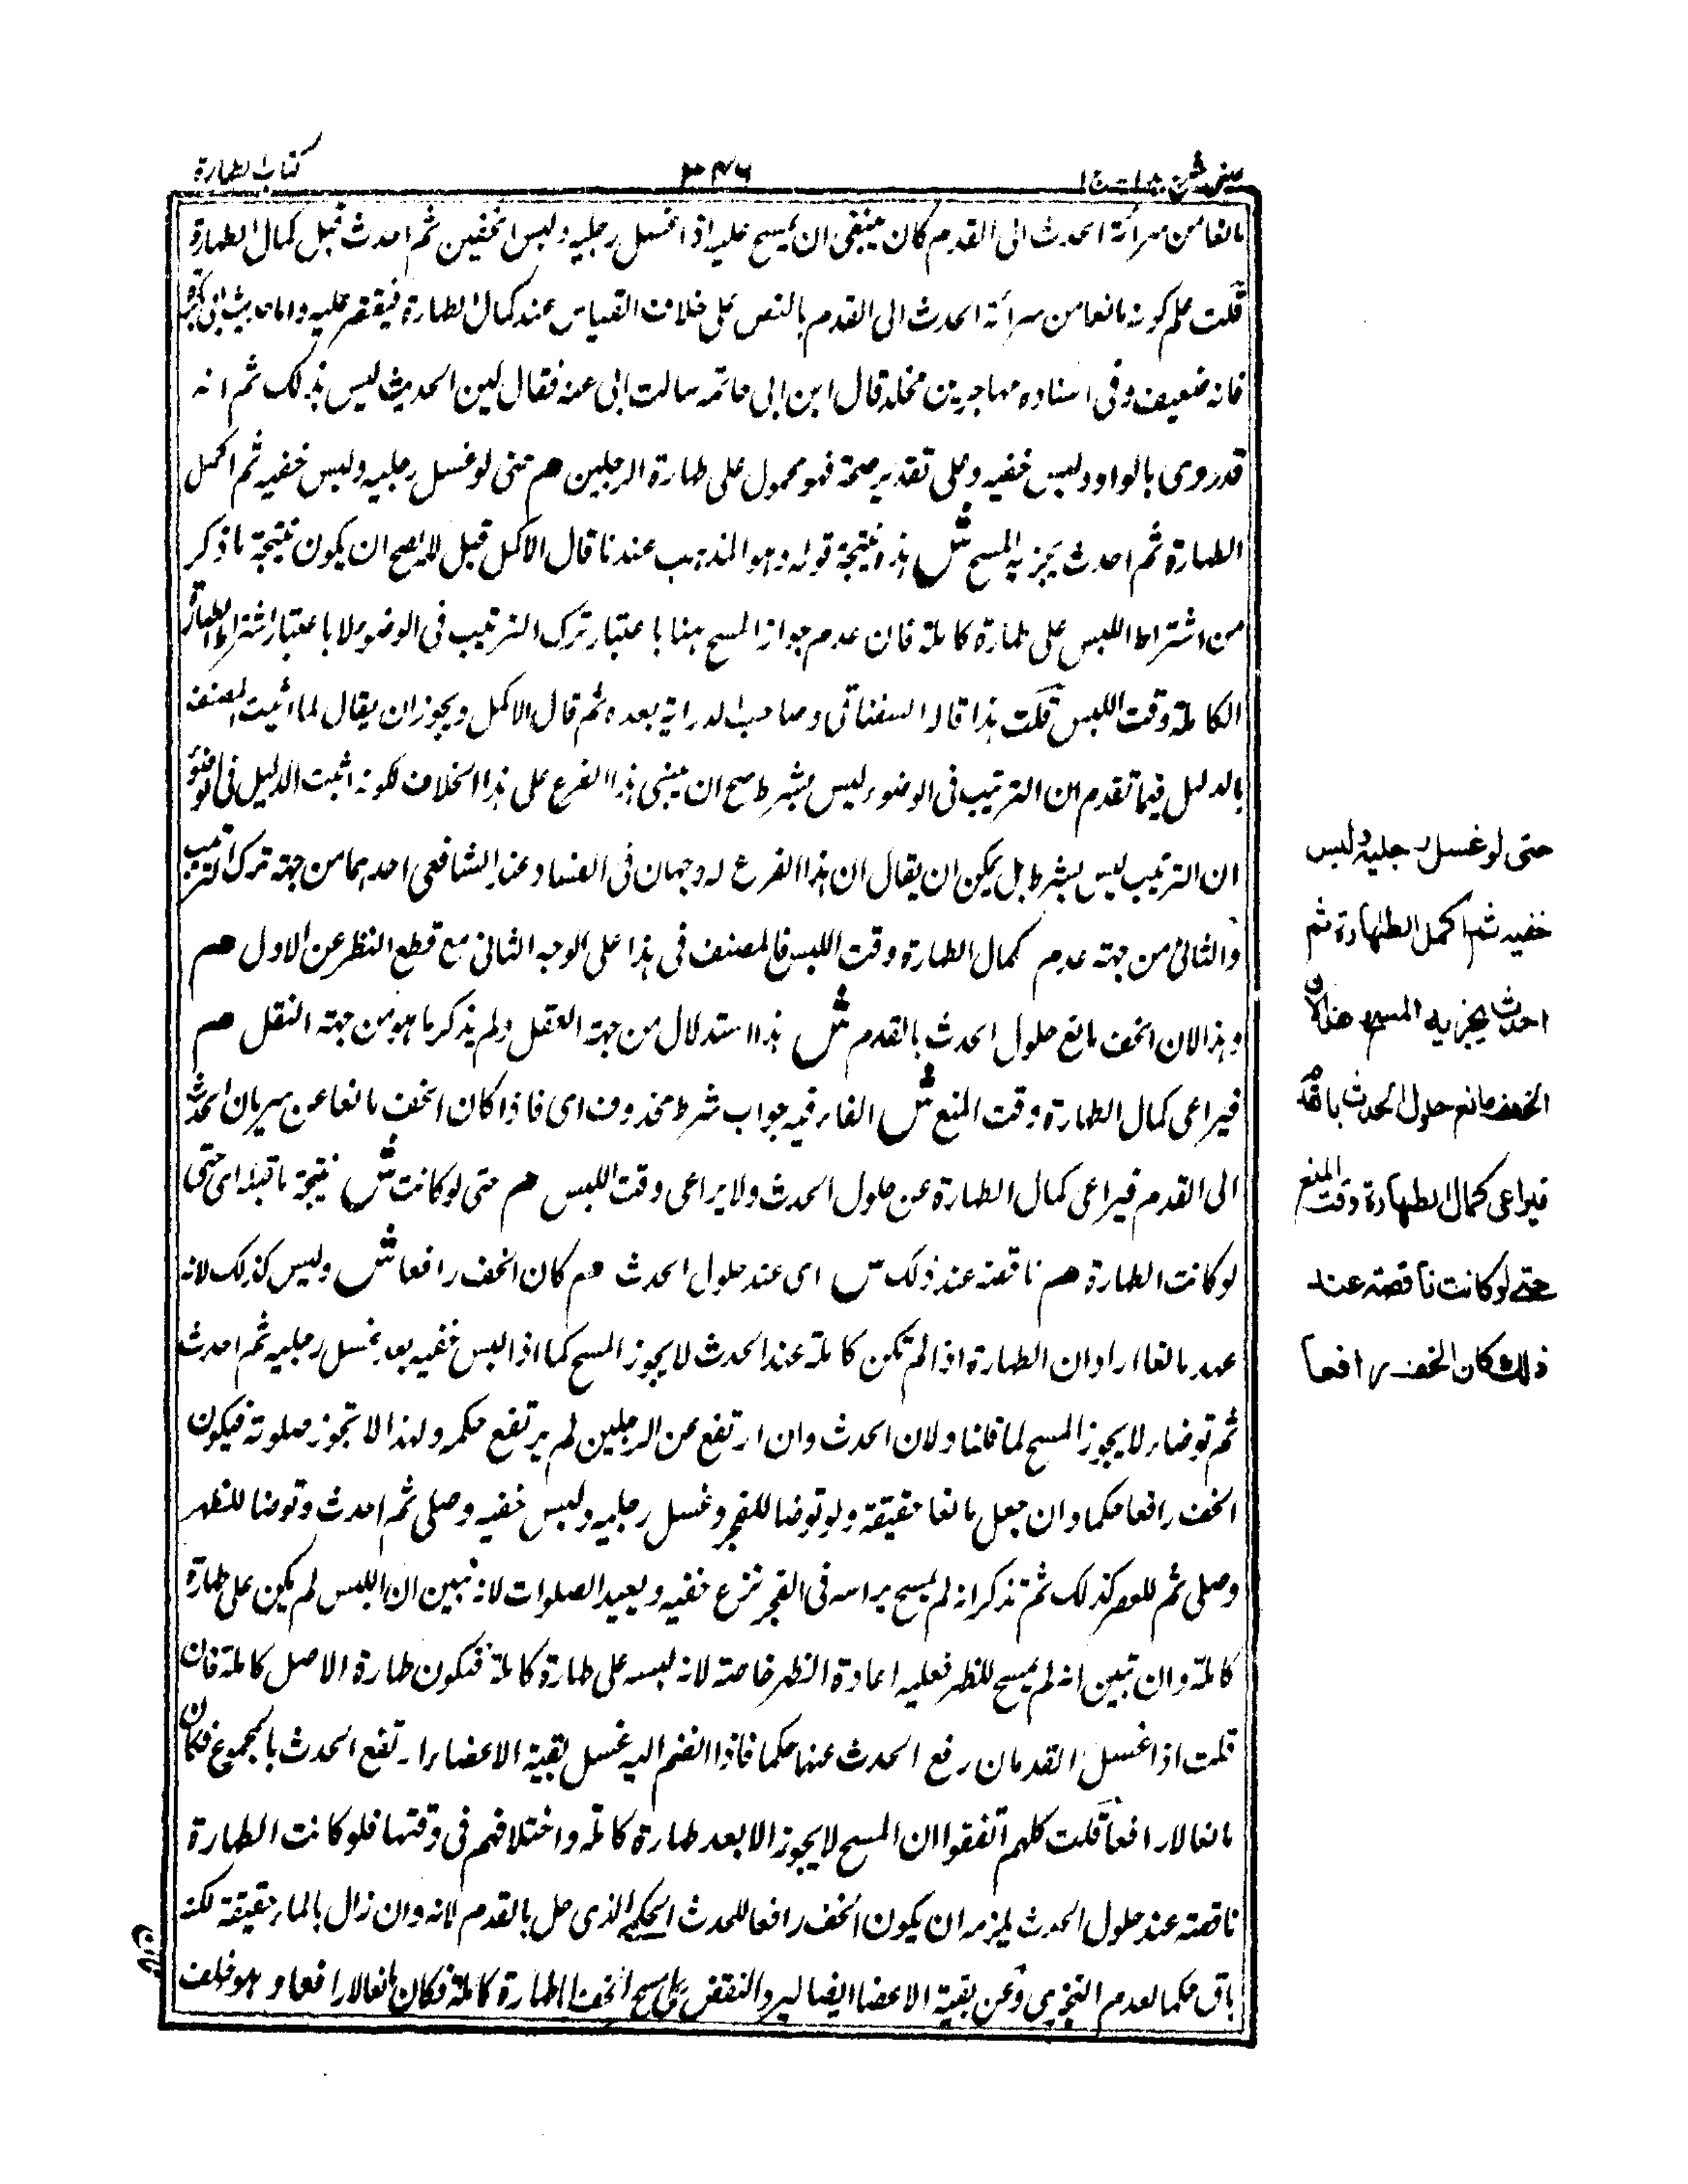 عینی شرح هدایة ج ۱
۳۴۶
کتاب الطهارة
مانعا من سرائة الحدث الی القدم کان ینبغی ان یمسح علیه اذا غسل رجلیه ولبس الخفین ثم احدث قبل کمال الطهارة
قلت علم کونه مانعا من سرائة الحدث الی القدم بالنص علی خلاف القیاس عند کمال الطهارة فیقتصر علیه واما حدیث ابی بکرة
فانه ضعیف وفی اسناده مهاجر بن مخلد قال ابن ابی حاتمه سالت ابی عنه فقال لین الحدیث لیس بذلک ثم انه
قد روی بالواو ولبس خفیه وعلی تقدیر صحة فهو محمول علی طهارة الرجلین هم حتی لو غسل رجلیه ولبس خفیه ثم اکمل
الطهارة ثم احدث یجزیه المسح ش هذا نتیجة قوله وهو المذهب عندنا قال الاکمل قیل لا یصح ان یکون نتیجة ما ذکر
من اشتراط اللبس علی طهارة کاملة فان عدم جواز المسح هنا باعتبار ترک الترتیب فی الوضوء لا باعتبار اشتراط الطهارة
الکاملة وقت اللبس قلت هذا قاله السغناقی وصاحب الدرایة بعده ثم قال الاکمل ویجوز ان یقال لما اثبت المصنف
بالدلیل فیما تقدم ان الترتیب فی الوضوء لیس بشرط صح ان یبنی هذا الفرع علی هذا الخلاف لکونه اثبت الدلیل فی الوضوء
ان الترتیب لیس بشرط بل یمکن ان یقال ان هذا الفرع له وجهان فی الفساد عند الشافعی احدهما من جهة ترک الترتیب
والثانی من جهة عدم کمال الطهارة وقت اللبس فالمصنف فی هذا علی الوجه الثانی مع قطع النظر عن الاول هم
وهذا لان الخف مانع حلول الحدث بالقدم ش هذا استدلال من جهة العقل ولم یذکر ما هو من جهة النقل هم
فیراعی کمال الطهارة وقت المنع ش الفاء فیه جواب شرط محذوف ای فاذا کان الخف مانعا عن سریان الحدث
الی القدم فیراعی کمال الطهارة عن حلول الحدث ولا یراعی وقت اللبس هم حتی لو کانت ش نتیجة ما قبله ای حتی
لو کانت الطهارة هم ناقصة عند ذلک ش ای عند حلول الحدث هم کان الخف رافعا ش ولیس کذلک لانه
عهد مانعا اراد ان الطهارة اذا لم تکن کاملة عند الحدث لا یجوز المسح کما اذا لبس خفیه بعد غسل رجلیه ثم احدث
ثم توضاء لا یجوز المسح لما قلنا ولان الحدث وان ارتفع عن الرجلین لم یرتفع حکمه ولهذا لا تجوز صلوته فیکون
الخف رافعا حکما وان جعل مانعا حقیقة ولو توضا للفجر وغسل رجلیه ولبس خفیه وصلی ثم احدث وتوضا للظهر
وصلی ثم للعصر کذلک ثم تذکر انه لم یمسح براسه فی الفجر نزع خفیه ویعید الصلوات لانه تبین ان اللبس لم یکن علی طهارة
کاملة وان تبین انه لم یمسح للظهر فعلیه اعادة الظهر خاصة لانه لبسه علی طهارة کاملة فتکون طهارة الاصل کاملة فان
قلت اذا غسل القدمان رفع الحدث عنها حکما فاذا انضم الیه غسل بقیة الاعضاء ارتفع الحدث بالمجموع فکان
مانعا لا رافعا قلت کلهم اتفقوا ان المسح لا یجوز الا بعد طهارة کاملة واختلافهم فی وقتها فلو کانت الطهارة
ناقصة عند حلول الحدث یلزمه ان یکون الخف رافعا للحدث الحکمی الذی حل بالقدم لانه وان زال بالماء حقیقة لکنه
باق حکما لعدم التجزی وعن بقیة الاعضا ایضا لیرد النقض علی مسح الخف الطهارة کاملة فکان مانعا لا رافعا وهو خلف
حتی لو غسل رجلیه ولبس
خفیه ثم اکمل الطهارة ثم
احدث یجزیه المسح هذا لان
الخف مانع حلول الحدث بالقدم
فیراعی کمال الطهارة وقت المنع
حتی لو کانت ناقصة عند
ذلک کان الخف رافعا